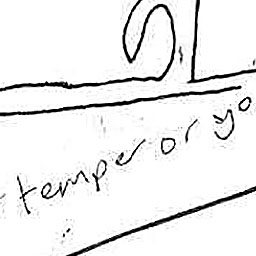 temper or yo